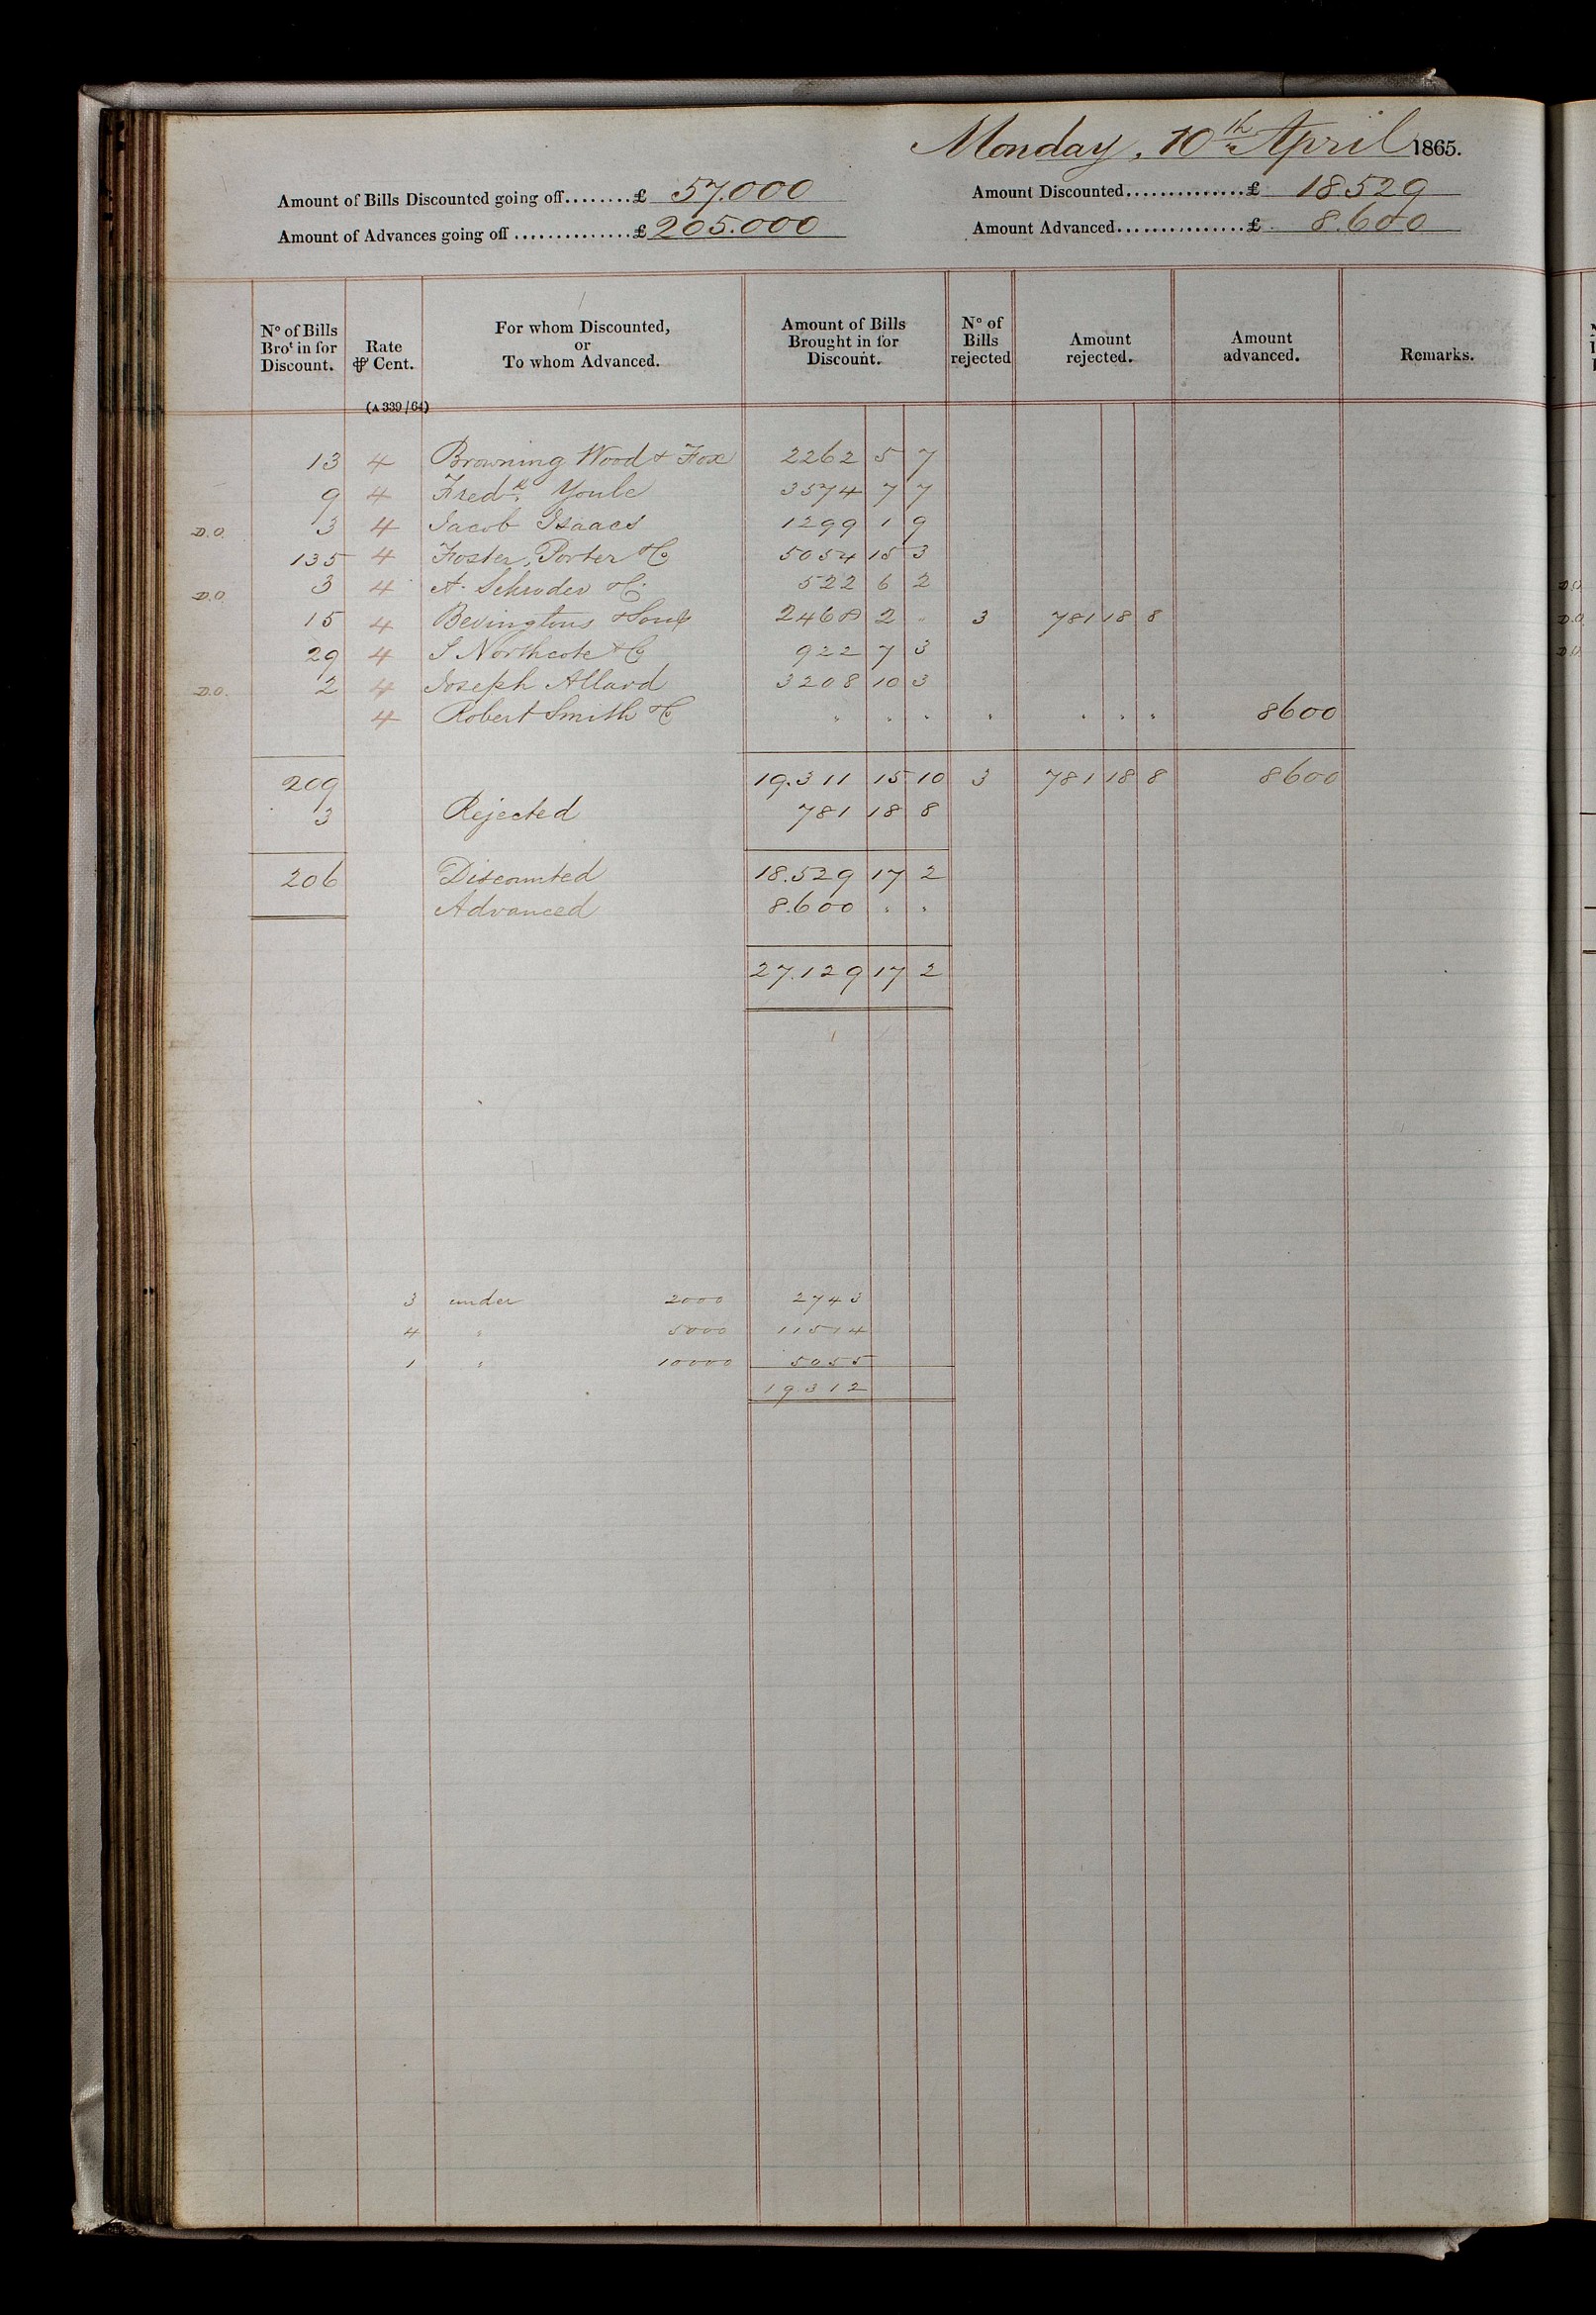 Monday, 10th April 1865.
Amount of Bills Discounted going off........£ 57.000
Amount Discounted..............£ 18.529
Amount of Advances going off ..............£ 205.000
Amount Advanced...............£ 8.600
No of Bills Brot in for Discount. Rate ⅌ Cent. For whom Discounted, or To whom Advanced. Amount of Bills Brought in for Discount. No of Bills rejected Amount rejected. Amount advanced. Remarks.
(A 339/64)
13 4 Browning Wood & Fox 2262 5 7
9 4 Fredk. Youle 3574 7 7
D.O. 3 4 Jacob Isaacs 1299 1 9
135 4 Foster, Porter & Co 5054 15 3
D.O. 3 4 A. Schroder & Co 522 6 2
15 4 Bevingtons & Sons 2468 2 " 3 781 18 8
29 4 S Northcote & Co 922 7 3
D.O. 2 4 Joseph Allard 3208 10 3
4 Robert Smith & Co " " " " " " " 8600
209 19.311 15 10 3 781 18 8 8600
3 Rejected 781 18 8
206 Discounted 18.529 17 2
Advanced 8.600 " "
27.129 17 2
3 under 2000 2743
4 " 5000 11514
1 " 10000 5055
19312